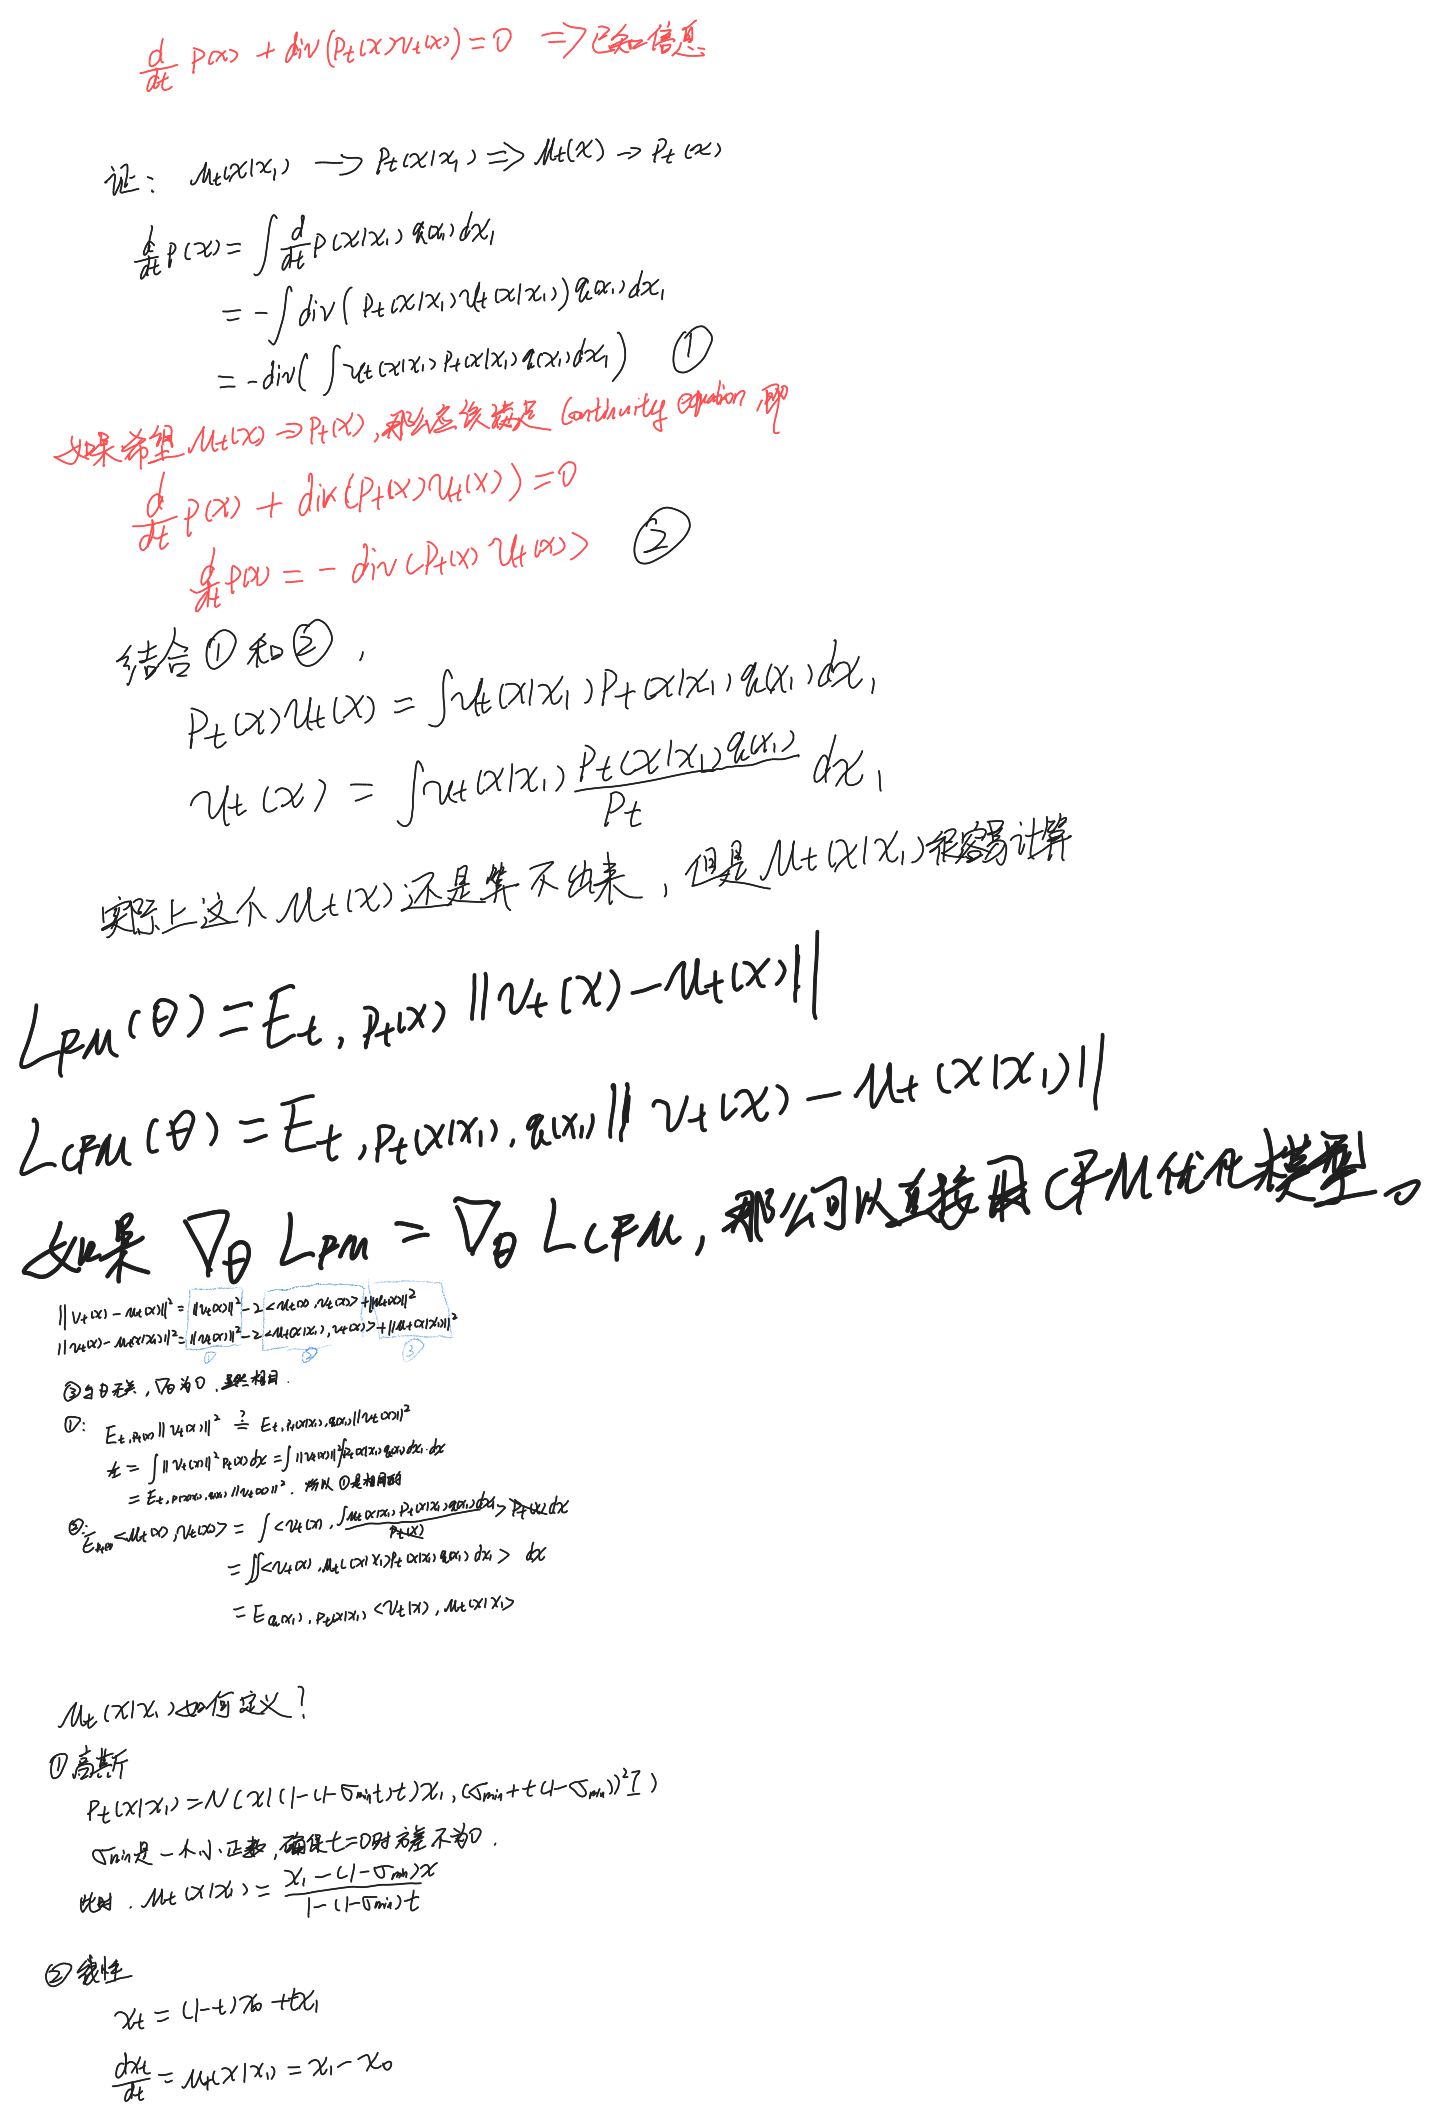 d/dt p(x) + div(Pt(x)vt(x)) = 0 => 已知信息
证: ut(x|x₁) → Pt(x|x₁) => ut(x) → Pt(x)
d/dt p(x) = ∫ d/dt p(x|x₁) q(x₁) dx₁
= -∫ div( Pt(x|x₁) ut(x|x₁)) q(x₁) dx₁
= -div( ∫ ut(x|x₁) Pt(x|x₁) q(x₁) dx₁) ①
如果希望 ut(x) → Pt(x), 那么应该满足 Continuity equation, 即
d/dt p(x) + div(Pt(x) ut(x)) = 0
d/dt p(x) = - div(Pt(x) ut(x)) ②
结合①和②,
Pt(x)ut(x) = ∫ut(x|x₁) Pt(x|x₁) q(x₁) dx₁
ut(x) = ∫ut(x|x₁) Pt(x|x₁) q(x₁) / Pt dx₁
实际上这个 ut(x) 还是算不出来, 但是 ut(x|x₁) 很容易计算
L_FM(θ) = E t, Pt(x) ||vt(x) - ut(x)||
L_CFM(θ) = E t, Pt(x|x₁), q(x₁) || vt(x) - ut(x|x₁)||
如果 ∇θ L_FM = ∇θ L_CFM, 那么可以直接用 CFM 优化模型。
||vt(x) - ut(x)||² = ||vt(x)||² - 2<ut(x), vt(x)> + ||ut(x)||²
||vt(x) - ut(x|x₁)||² = ||vt(x)||² - 2<ut(x|x₁), vt(x)> + ||ut(x|x₁)||²
① ② ③
③与θ无关, ∇θ为0, 显然相同.
①: E t, Pt(x) ||vt(x)||² ?= E t, Pt(x|x₁), q(x₁) ||vt(x)||²
左 = ∫||vt(x)||² Pt(x) dx = ∫||vt(x)||² ∫Pt(x|x₁) q(x₁) dx₁·dx
= E t, P(x|x₁), q(x₁) ||vt(x)||². 所以①是相同的
②: E Pt(x) <ut(x), vt(x)> = ∫<vt(x), ∫ut(x|x₁) Pt(x|x₁) q(x₁) dx₁ / Pt(x)> Pt(x) dx
= ∬<vt(x), ut(x|x₁) Pt(x|x₁) q(x₁) dx₁> dx
= E q(x₁), Pt(x|x₁) <vt(x), ut(x|x₁)>
ut(x|x₁) 如何定义?
① 高斯
Pt(x|x₁) = N(x|(1-(1-σmin t)t)x₁, (σmin + t(1-σmin))²I)
σmin是一个小正数, 确保 t=0时方差不为0.
此时. ut(x|x₁) = x₁-(1-σmin)x / 1-(1-σmin)t
② 线性
xt = (1-t)x₀ + tx₁
dxt/dt = ut(x|x₁) = x₁ - x₀